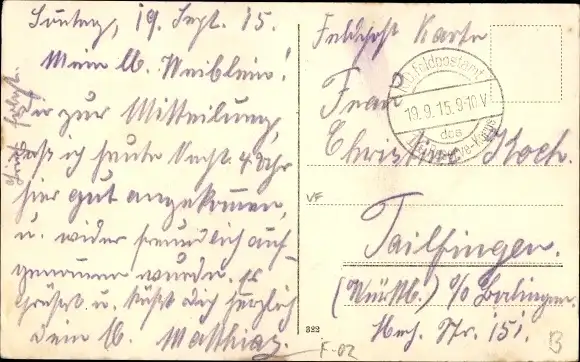 Sonntag, 19. Sept. 15.
Mein lb. Weiblein!
Dir zur Mitteilung,
daß ich heute Nacht 4 Uhr
hier gut angekommen,
u. wider freundlich auf-
genommen wurde. Es
grüßt u. küßt Dich herzlich
Dein lb. Matthias.
Feldpost Karte
K.D. Feldpostamt
19.9.15. 9-10 V
des
Frau
Christine Koch.
VF
Tailfingen.
(Württb.)
Hech. Str. 151.
322
F-02
B